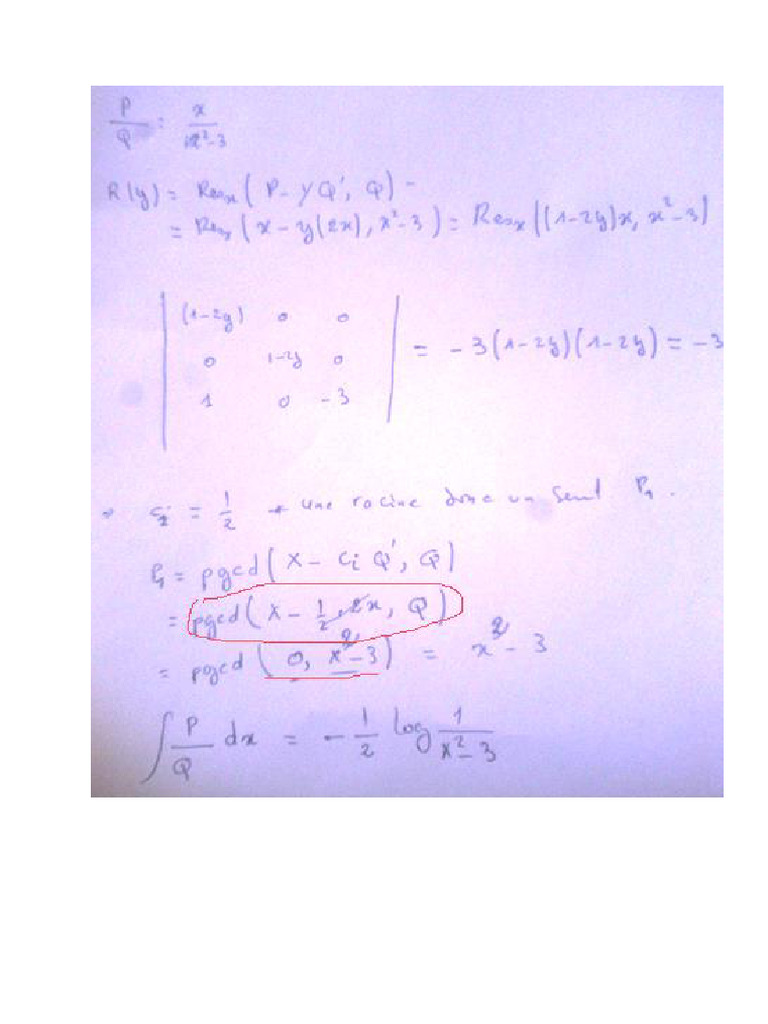 P/Q = x/(x²-3)
R(y) = Resx ( P - yQ', Q ) =
= Resx ( x - y(2x), x²-3 ) = Resx ((1-2y)x, x²-3)
| (1-2y) 0 0 |
| 0 1-2y 0 | = -3(1-2y)(1-2y) = -3
| 1 0 -3 |
= 1/2 une racine donc un seul P₁.
P₁ = pgcd ( X - ci Q', Q )
= pgcd ( X - 1/2 . 2x, Q )
= pgcd ( 0, x²-3 ) = x² - 3
∫ P/Q dx = - 1/2 log 1/(x²-3)